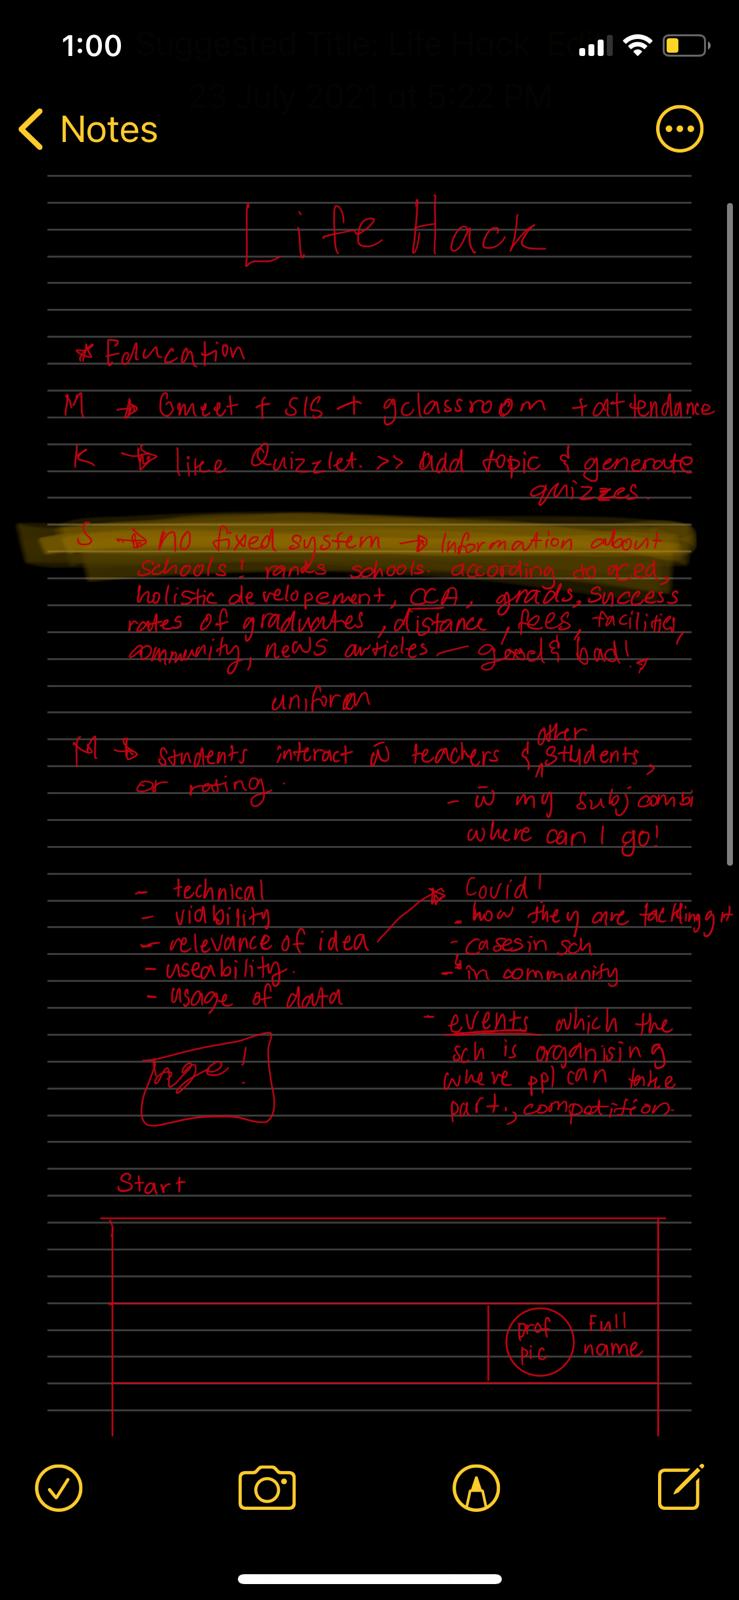 1:00
Suggested Title: Life Hack Ed
23 July 2021 at 5:22 PM
Notes
Life Hack
* Education
M → Gmeet + SIS + gclassroom + attendance
K → like Quizzlet. >> add topic & generate
quizzes.
S → no fixed system → Information about
schools! ranks schools. according to aced,
holistic developement, CCA, grads, success
rates of graduates, distance, fees, facilities,
community, news articles — good & bad!,
uniform
M → Students interact w̄ teachers & other students,
or rating.
- w̄ my subj combi
where can I go!
- technical
- viability
- relevance of idea
- useability.
- usage of data
* Covid!
- how they are tackling it
- cases in sch
- in community
- events which the
sch is organising
where ppl can take
part., competition.
Start
prof
pic
Full
name